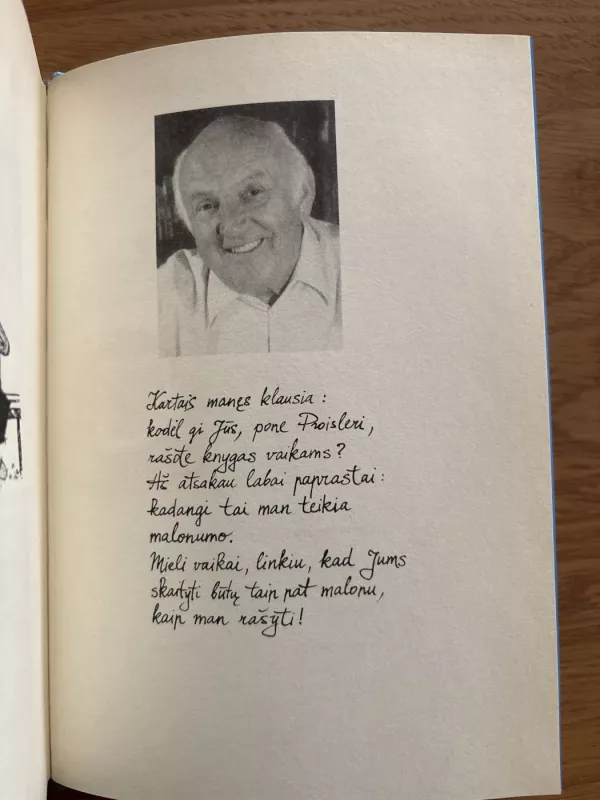 Kartais manęs klausia:
kodėl gi Jūs, pone Proisleri,
rašote knygas vaikams?
Aš atsakau labai paprastai:
kadangi tai man teikia
malonumo.
Mieli vaikai, linkiu, kad Jums
skaityti būtų taip pat malonu,
kaip man rašyti!